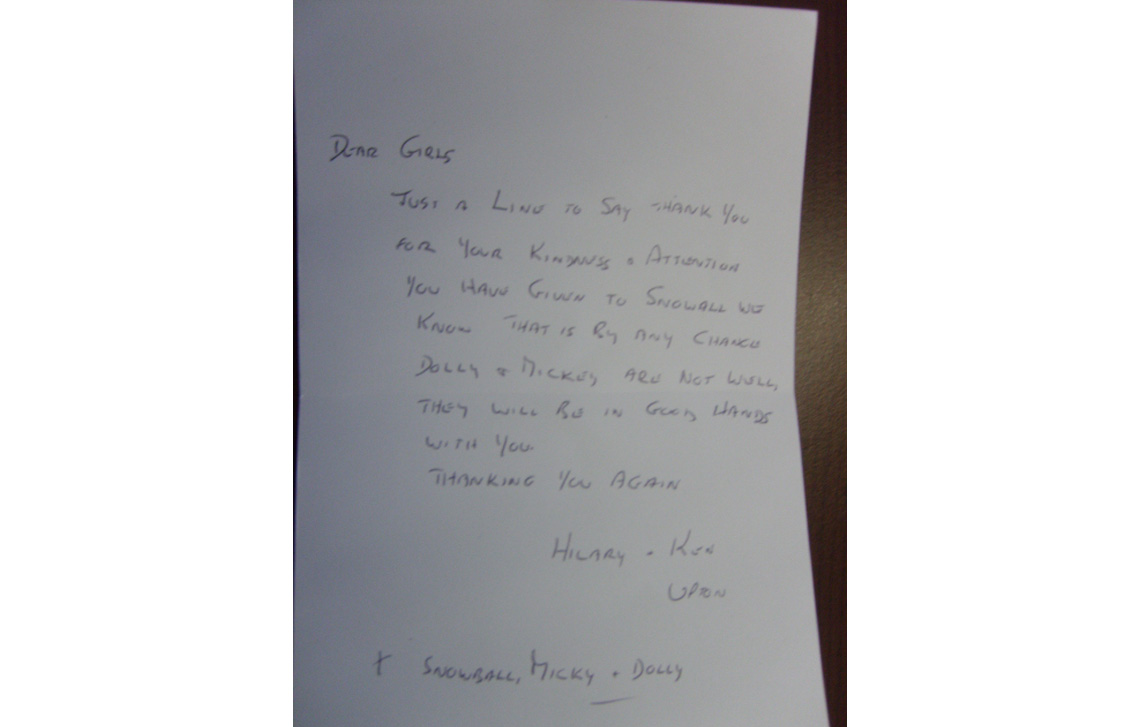 DEAR GIRLS
JUST A LINE TO SAY THANK YOU
FOR YOUR KINDNESS & ATTENTION
YOU HAVE GIVEN TO SNOWALL WE
KNOW THAT IS BY ANY CHANCE
DOLLY & MICKEY ARE NOT WELL,
THEY WILL BE IN GOOD HANDS
WITH YOU
THANKING YOU AGAIN
HILARY & KEN
UPTON
+ SNOWBALL, MICKY & DOLLY